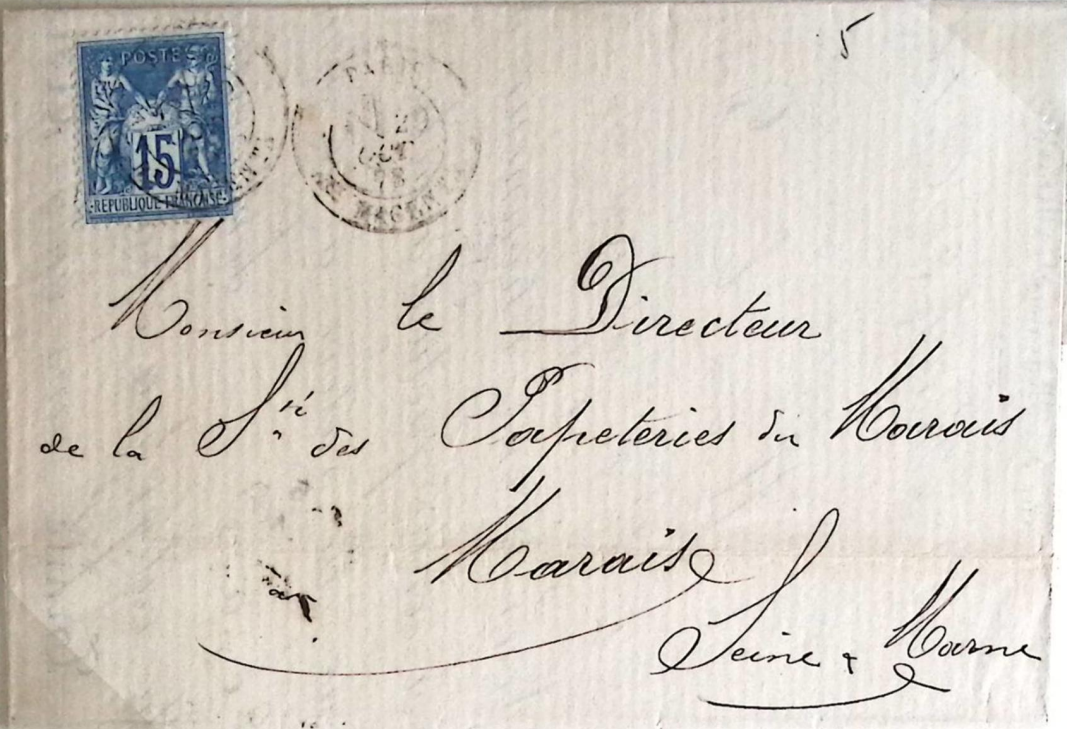 5
POSTES
15
REPUBLIQUE FRANCAISE
PARIS
OCT
78
MAGENT
Monsieur le Directeur
de la Sté des Papeteries du Marais
Marais
Seine & Marne